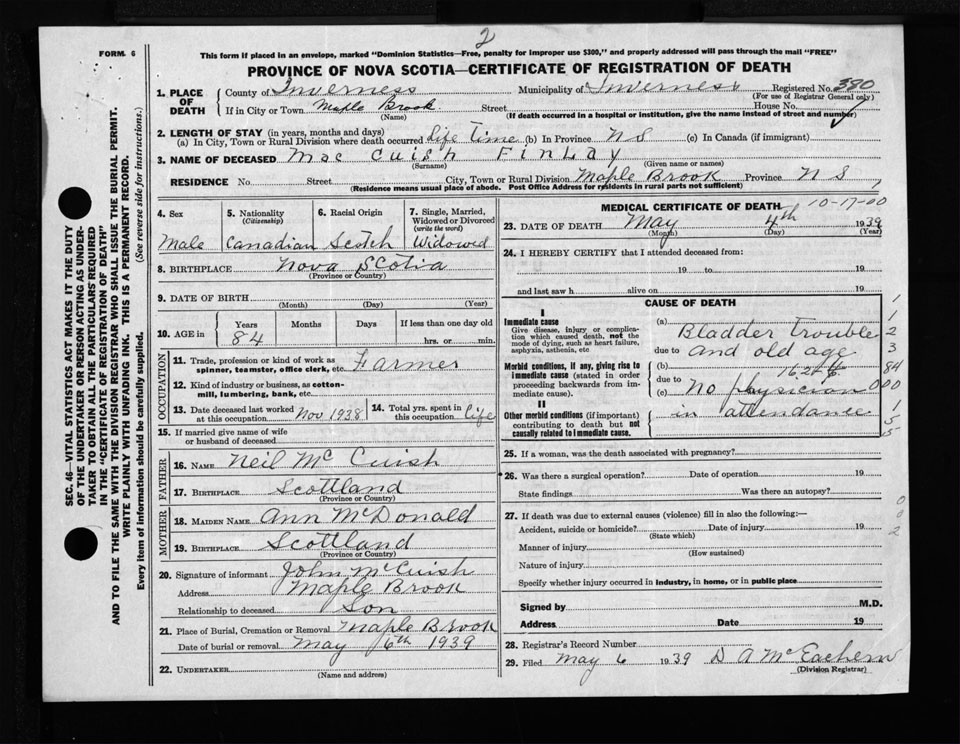 2
FORM 6
This form if placed in an envelope, marked "Dominion Statistics—Free, penalty for improper use $300," and properly addressed will pass through the mail "FREE"
PROVINCE OF NOVA SCOTIA—CERTIFICATE OF REGISTRATION OF DEATH
1. PLACE OF DEATH County of Inverness Municipality of Inverness Registered No. 390
(For use of Registrar General only)
If in City or Town Maple Brook Street House No.
(Name) (If death occurred in a hospital or institution, give the name instead of street and number)
2. LENGTH OF STAY (in years, months and days)
(a) In City, Town or Rural Division where death occurred Life Time (b) In Province N S (c) In Canada (if immigrant)
3. NAME OF DECEASED Mac Cuish Finlay
(Surname) (Given name or names)
RESIDENCE No. Street City, Town or Rural Division Maple Brook Province N S
(Residence means usual place of abode. Post Office Address for residents in rural parts not sufficient)
4. Sex 5. Nationality (Citizenship) 6. Racial Origin 7. Single, Married, Widowed or Divorced (write the word)
Male Canadian Scotch Widowed
8. BIRTHPLACE Nova Scotia
(Province or Country)
9. DATE OF BIRTH
(Month) (Day) (Year)
10. AGE in Years Months Days If less than one day old
84 hrs. or min.
OCCUPATION
11. Trade, profession or kind of work as spinner, teamster, office clerk, etc. Farmer
12. Kind of industry or business, as cotton-mill, lumbering, bank, etc.
13. Date deceased last worked at this occupation Nov 1938 14. Total yrs. spent in this occupation life
15. If married give name of wife or husband of deceased
FATHER
16. NAME Neil Mc Cuish
17. BIRTHPLACE Scottland
(Province or Country)
MOTHER
18. MAIDEN NAME Ann McDonald
19. BIRTHPLACE Scottland
(Province or Country)
20. Signature of informant John McCuish
Address Maple Brook
Relationship to deceased Son
21. Place of Burial, Cremation or Removal Maple Brook
Date of burial or removal May 6th 1939
22. UNDERTAKER
(Name and address)
MEDICAL CERTIFICATE OF DEATH 10-17-00
23. DATE OF DEATH May 4th 1939
(Month) (Day) (Year)
24. I HEREBY CERTIFY that I attended deceased from:
19 to 19
and last saw h alive on 19
CAUSE OF DEATH
I
Immediate cause
Give disease, injury or complication which caused death, not the mode of dying, such as heart failure, asphyxia, asthenia, etc
(a) Bladder Trouble
due to and old age
Morbid conditions, if any, giving rise to immediate cause (stated in order proceeding backwards from immediate cause).
(b)
due to
(c) No physician
in attendance
II
Other morbid conditions (if important) contributing to death but not causally related to immediate cause.
1
1
2
3
84
000
1
5
5
25. If a woman, was the death associated with pregnancy?
26. Was there a surgical operation? Date of operation 19
State findings Was there an autopsy?
27. If death was due to external causes (violence) fill in also the following:—
Accident, suicide or homicide? Date of injury 19
(State which)
Manner of injury
(How sustained)
Nature of injury
Specify whether injury occurred in industry, in home, or in public place
0
0
2
Signed by M.D.
Address Date 19
28. Registrar's Record Number
29. Filed May 6 1939 D A McEachern
(Division Registrar)
SEC. 46—VITAL STATISTICS ACT MAKES IT THE DUTY
OF THE UNDERTAKER OR PERSON ACTING AS UNDER-
TAKER TO OBTAIN ALL THE PARTICULARS REQUIRED
IN THE "CERTIFICATE OF REGISTRATION OF DEATH"
AND TO FILE THE SAME WITH THE DIVISION REGISTRAR WHO SHALL ISSUE THE BURIAL PERMIT.
WRITE PLAINLY WITH UNFADING INK. THIS IS A PERMANENT RECORD.
Every item of information should be carefully supplied. (See reverse side for instructions.)